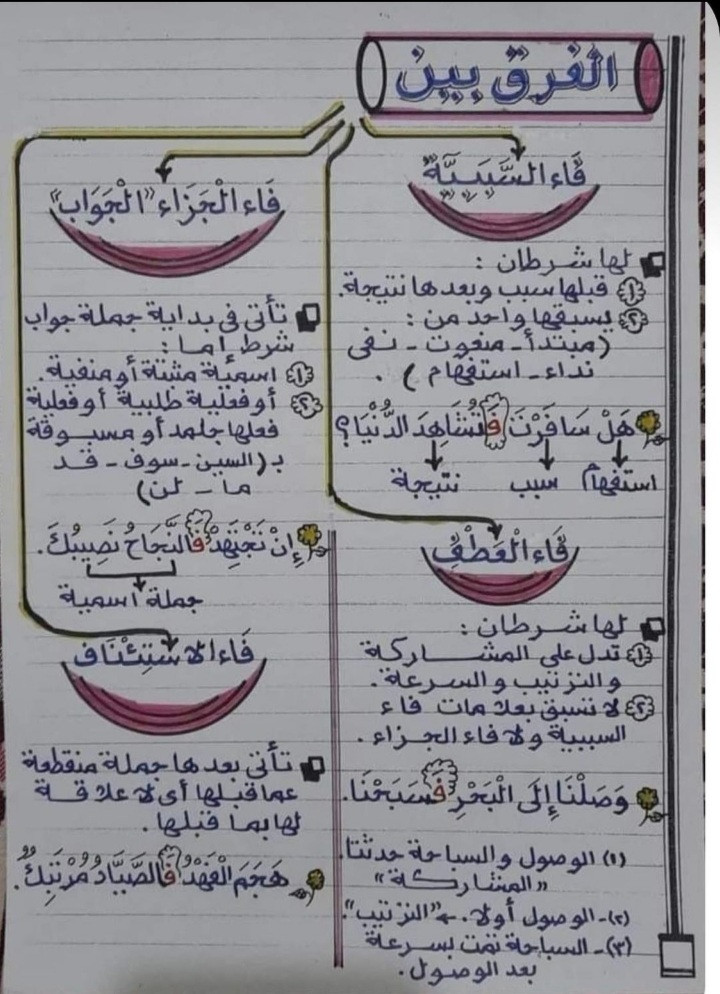 الفرق بين
فَاء السَّبَبِيَّة
لها شرطان :
(١) قبلها سبب وبعدها نتيجة.
(٢) يسبقها واحد من :
(مبتدأ - منعوت - نفى
نداء - استفهام ) .
هَلْ سَافَرْتَ فَتُشَاهِدَ الدُّنْيَا؟
استفهام سبب نتيجة
فَاء الْعَطْفِ
لها شرطان :
(١) تدل على المشاركة
والترتيب والسرعة.
(٢) لا تسبق بعلامات فاء
السببية ولا فاء الجزاء.
وَصَلْنَا إِلَى الْبَحْرِ فَسَبَحْنَا.
(١) الوصول والسباحة حدثتا.
"المشاركة"
(٢)- الوصول أولا. ← "الترتيب".
(٣)- السباحة تمت بسرعة
بعد الوصول.
فَاء الْجَزَاء "الْجَوَاب"
تأتى فى بداية جملة جواب
شرط إما :
(١) اسمية مثبتة أو منفية.
(٢) أو فعلية طلبية أو فعلية
فعلها جامد أو مسبوقة
بـ (السين - سوف - قد
ما - لن)
إِنْ تَجْتَهِدْ فَالنَّجَاحُ نَصِيبُكَ.
جملة اسمية
فَاء الاسْتِئْنَاف
تأتى بعدها جملة منقطعة
عما قبلها أى لا علاقة
لها بما قبلها.
هَجَمَ الْفَهْدُ فَالصَّيَّادُ مُرْتَبِكٌ.